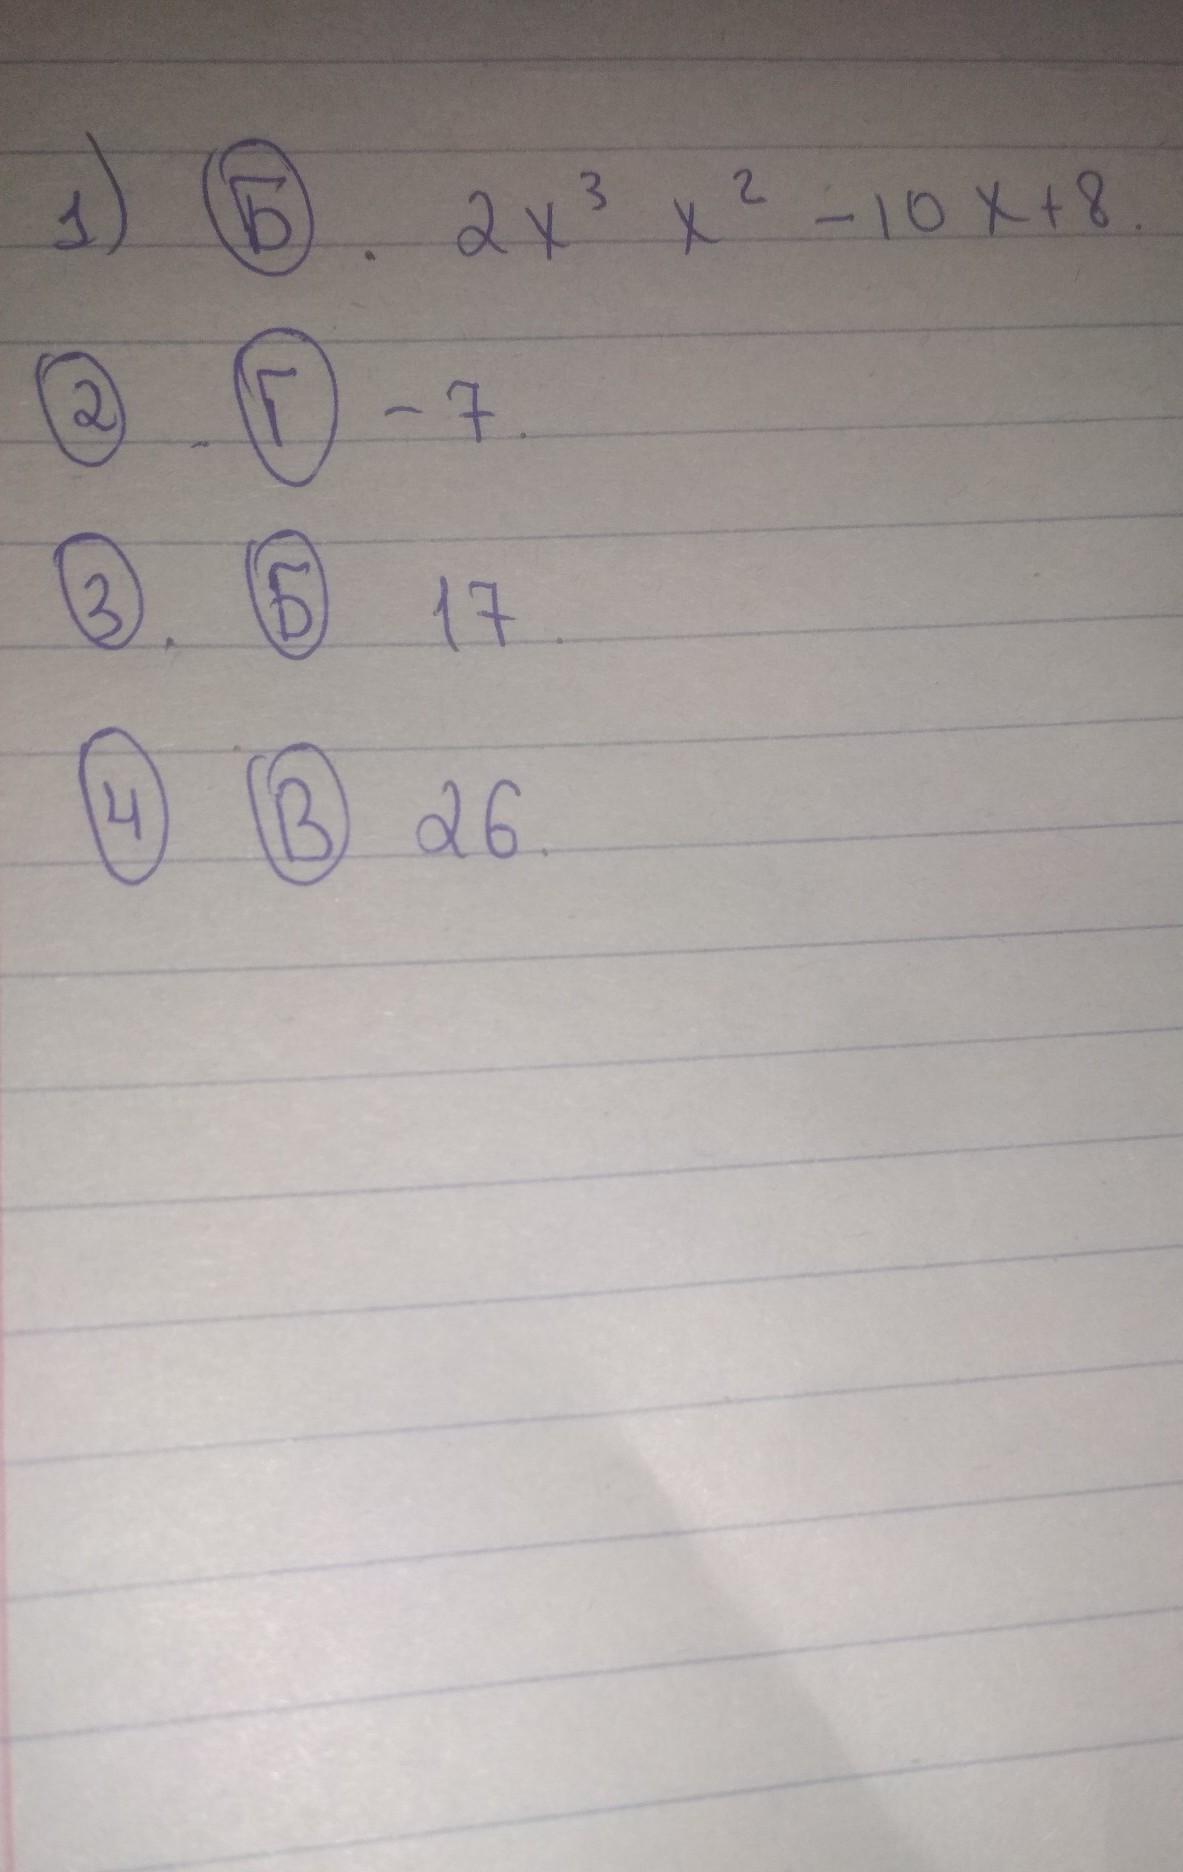 1) Б. 2x³ x² -10x+8.
2 - Г - 7.
3. Б 17.
4 В 26.